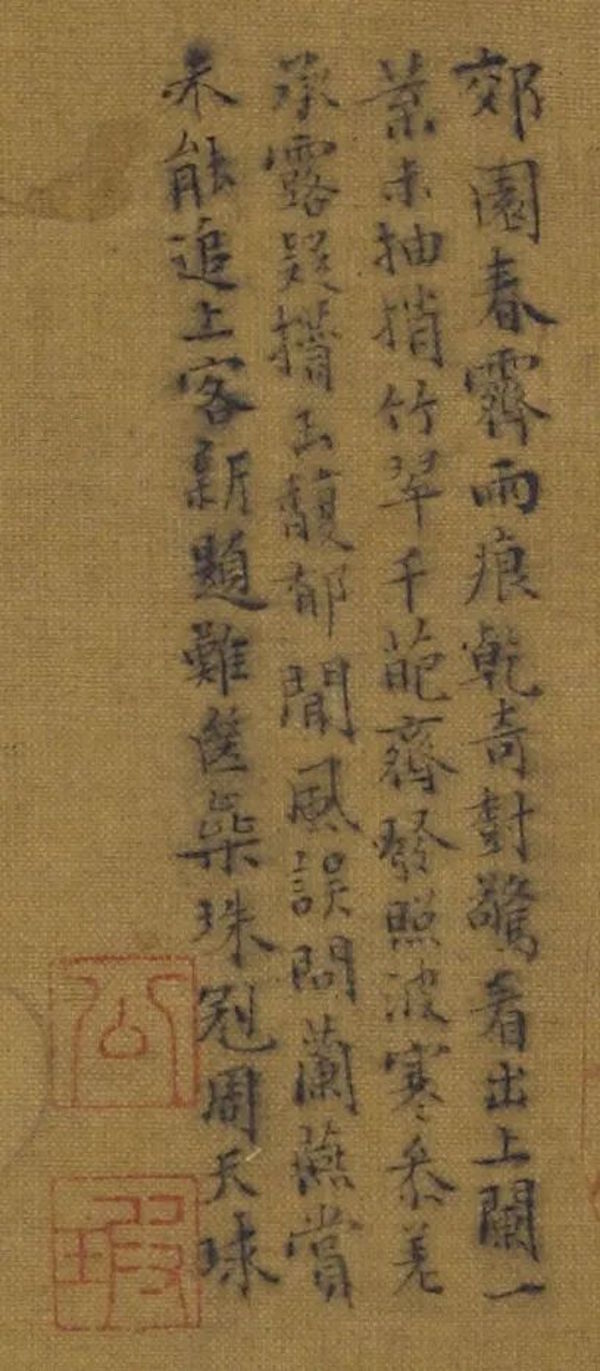 郊園春霽雨痕乾奇樹驚看出上闌一
葉未抽捎竹翠千葩齊發照波寒叅差
承露疑攢玉馥郁聞風誤問蘭蕪賞
未能追上客新題難蘂珠冠周天球
公
瑕